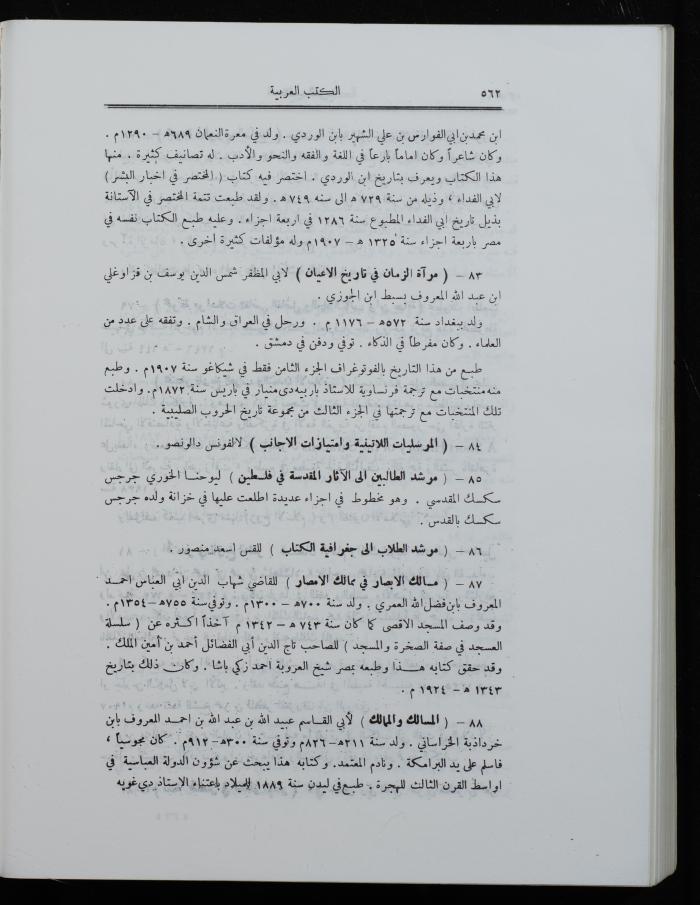 ٥٦٢
الكتب العربية
ابن محمد بن ابي الفوارس بن علي الشهير بابن الوردي . ولد في معرة النعمان ٦٨٩ه – ١٢٩٠م .
وكان شاعراً وكان اماماً بارعاً في اللغة والفقه والنحو والأدب . له تصانيف كثيرة . منها
هذا الكتاب ويعرف بتاريخ ابن الوردي . اختصر فيه كتاب ( المختصر في اخبار البشر )
لابي الفداء ، وذيله من سنة ٧٢٩ ه الى سنه ٧٤٩ ه. ولقد طبعت تتمة المختصر في الآستانة
بذيل تاريخ ابي الفداء المطبوع سنة ١٢٨٦ في اربعة اجزاء . وعليه طبع الكتاب نفسه في
مصر باربعة اجزاء سنة ١٣٢٥ ه – ١٩٠٧م وله مؤلفات كثيرة اخرى .
٨٣ – ( مرآة الزمان في تاريخ الاعيان ) لابي المظفر شمس الدين يوسف بن قزاوغلي
ابن عبد الله المعروف بسبط ابن الجوزي .
ولد ببغداد سنة ٥٧٢ه – ١١٧٦ م . ورحل في العراق والشام . وتفقه على عدد من
العلماء . وكان مفرطاً في الذكاء . توفي ودفن في دمشق .
طبع من هذا التاريخ بالفوتوغراف الجزء الثامن فقط في شيكاغو سنة ١٩٠٧م . وطبع
منه منتخبات مع ترجمة فرنساوية للاستاذ باربيه دي منيار في باريس سنة ١٨٧٢م. وادخلت
تلك المنتخبات مع ترجمتها في الجزء الثالث من مجموعة تاريخ الحروب الصليبية .
٨٤ – ( المرسليات اللاتينية وامتيازات الاجانب ) لالفونس دالونصو .
٨٥ – ( مرشد الطالبين الى الآثار المقدسة في فلسطين ) ليوحنا الخوري جرجس
سكسك المقدسي . وهو مخطوط في اجزاء عديدة اطلعت عليها في خزانة ولده جرجس
سكسك بالقدس .
٨٦ – ( مرشد الطلاب الى جغرافية الكتاب ) للقس اسعد منصور .
٨٧ – ( مسالك الابصار في ممالك الامصار ) للقاضي شهاب الدين أبي العباس احمد
المعروف بابن فضل الله العمري . ولد سنة ٧٠٠ه – ١٣٠٠م . وتوفي سنة ٧٥٥ه – ١٣٥٤م .
وقد وصف المسجد الاقصى كما كان سنة ٧٤٣ ه – ١٣٤٢ م آخذاً اكثره عن ( سلسلة
العسجد في صفة الصخرة والمسجد ) للصاحب تاج الدين أبي الفضائل أحمد بن أمين الملك .
وقد حقق كتابه هذا وطبعه بمصر شيخ العروبة احمد زكي باشا . وكان ذلك بتاريخ
١٣٤٣ ه – ١٩٢٤ م .
٨٨ – ( المسالك والممالك ) لأبي القاسم عبيد الله بن عبد الله بن احمد المعروف بابن
خرداذبة الخراساني . ولد سنة ٢١١ه–٨٢٦م وتوفي سنة ٣٠٠ه–٩١٢م . كان مجوسياً ،
فاسلم على يد البرامكة . ونادم المعتمد. وكتابه هذا يبحث عن شؤون الدولة العباسية في
اواسط القرن الثالث للهجرة . طبع في ليدن سنة ١٨٨٩ للميلاد باعتناء الاستاذ دي غويه